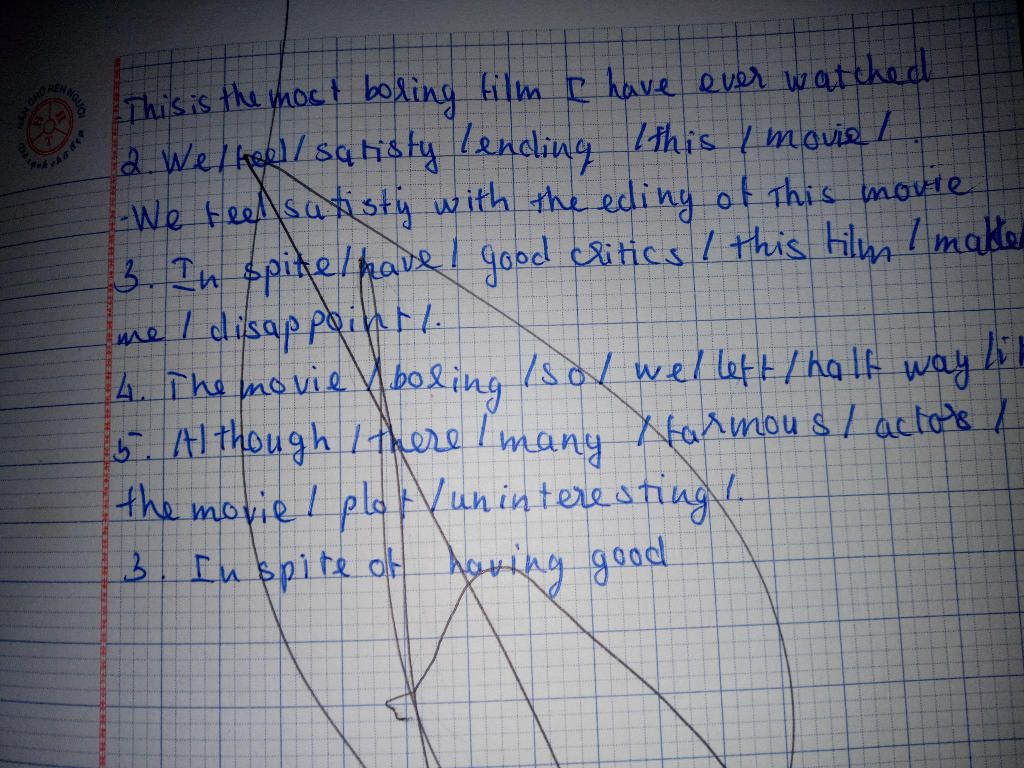 NÂN CHỮ RÈN NGƯỜI
-This is the most boring film I have ever watched
2. We / feel / satisfy / ending / this / movie /.
-We feel satisfy with the eding of This movie
3. In spite / have / good critics / this film / make
me / disappoint /.
4. The movie / boring / so / we / left / half way /
5. Although / there / many / farmous / actors /
the movie / plot / uninteresting /.
3. In spite of having good